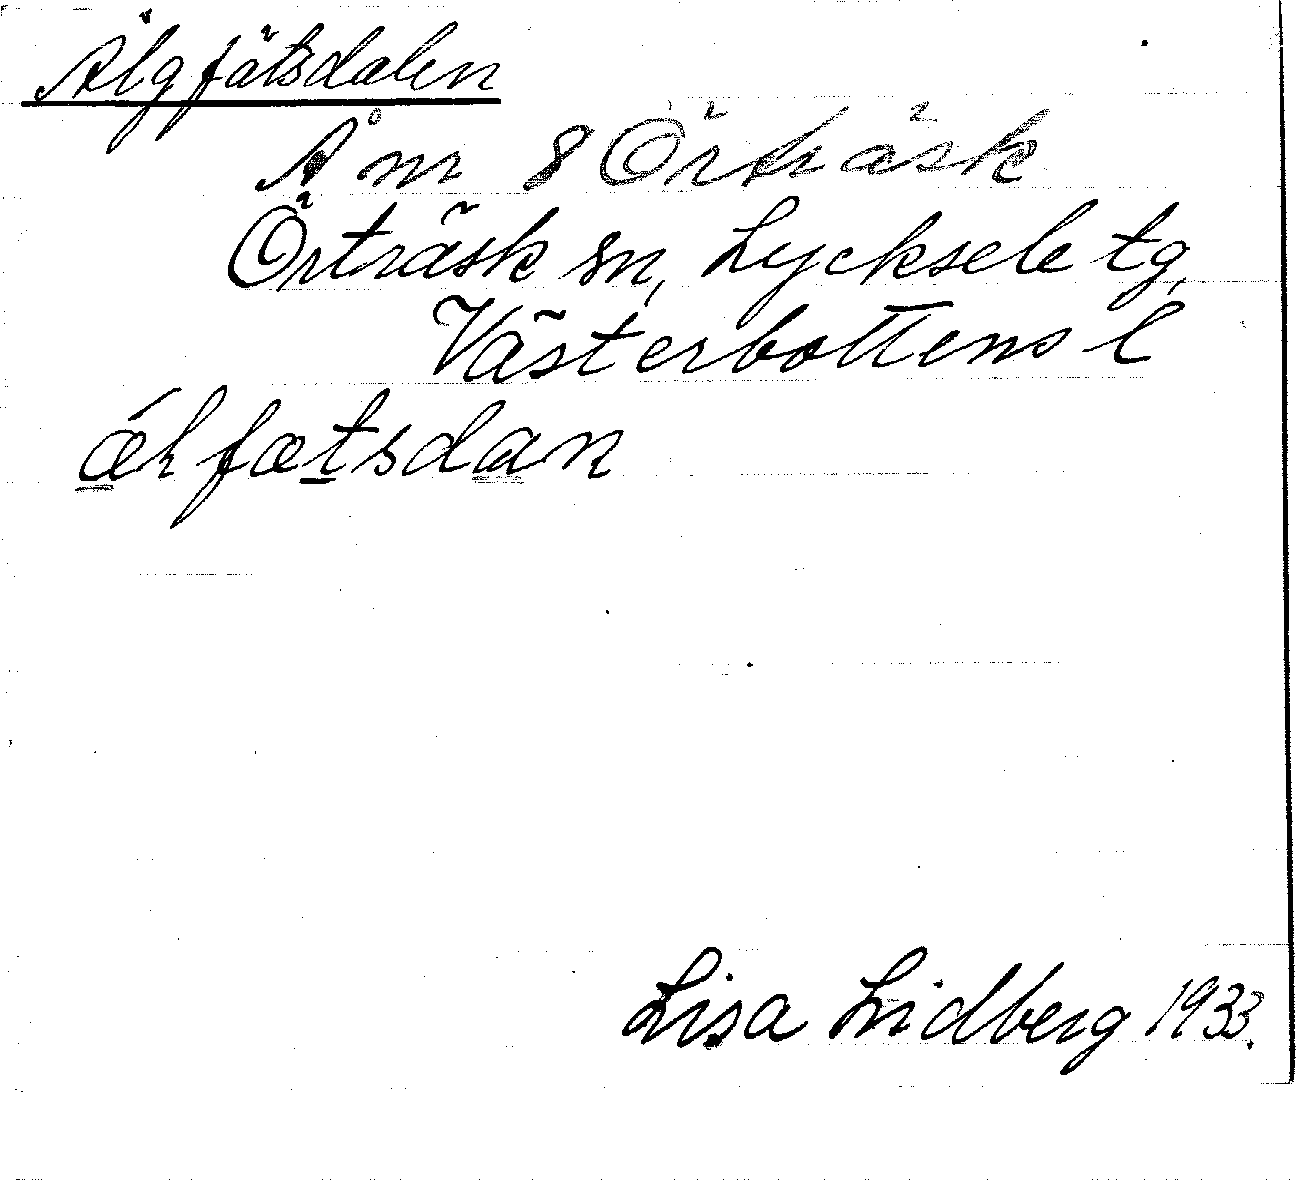 Älgfätsdalen
Å nr 8 Örträsk
Örträsk sn, Lycksele tg,
Västerbottens l
ǽhfætsdan
Lisa Lidberg 1933.